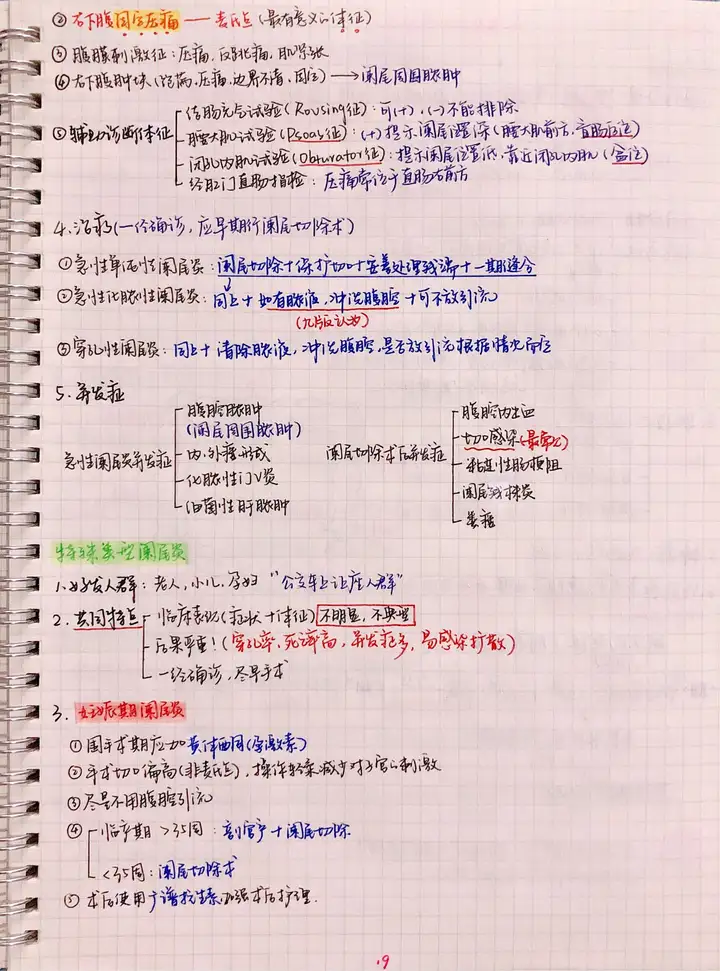 ② 右下腹固定压痛 —— 麦氏点 (最有意义的体征)
③ 腹膜刺激征: 压痛, 反跳痛, 肌紧张
④ 右下腹肿块 (饱满, 压痛, 边界不清, 固定) → 阑尾周围脓肿
⑤ 辅助诊断体征
结肠充气试验 (Rovsing征): 可(+), (-)不能排除
腰大肌试验 (Psoas征): (+)提示阑尾位置深 (腰大肌前方, 盲肠后位)
闭孔内肌试验 (Obturator征): 提示阑尾位置低, 靠近闭孔内肌 (盆位)
经肛门直肠指检: 压痛常位于直肠右前方
4. 治疗 (一经确诊, 应早期行阑尾切除术)
① 急性单纯性阑尾炎: 阑尾切除+保护切口+妥善处理残端+一期缝合
② 急性化脓性阑尾炎: 同上+如有脓液, 冲洗腹腔+可不放引流
(九版认为)
③ 穿孔性阑尾炎: 同上+清除脓液, 冲洗腹腔, 是否放引流根据情况而定
5. 并发症
急性阑尾炎并发症
腹腔脓肿
(阑尾周围脓肿)
内、外瘘形成
化脓性门V炎
细菌性肝脓肿
阑尾切除术后并发症
腹腔内出血
切口感染 (最常见)
粘连性肠梗阻
阑尾残株炎
粪瘘
特殊类型阑尾炎
1. 好发人群: 老人, 小儿, 孕妇 "公交车上让座人群"
2. 共同特点
临床表现 (症状+体征) 不明显, 不典型
后果严重! (穿孔率, 死亡率高, 并发症多, 易感染扩散)
一经确诊, 尽早手术
3. 妊娠期阑尾炎
① 围手术期应加黄体酮 (孕激素)
② 手术切口偏高 (非麦氏点), 操作轻柔减少对子宫的刺激
③ 尽量不用腹腔引流
④ 临产期 >35周: 剖宫产+阑尾切除
<35周: 阑尾切除术
⑤ 术后使用广谱抗生素, 加强术后护理.
.9